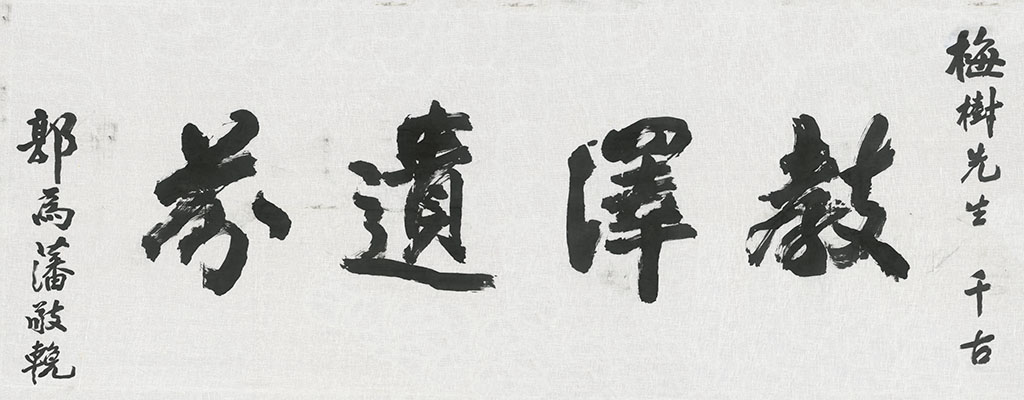 梅樹先生 千古
教澤遺芬
郭為藩敬輓